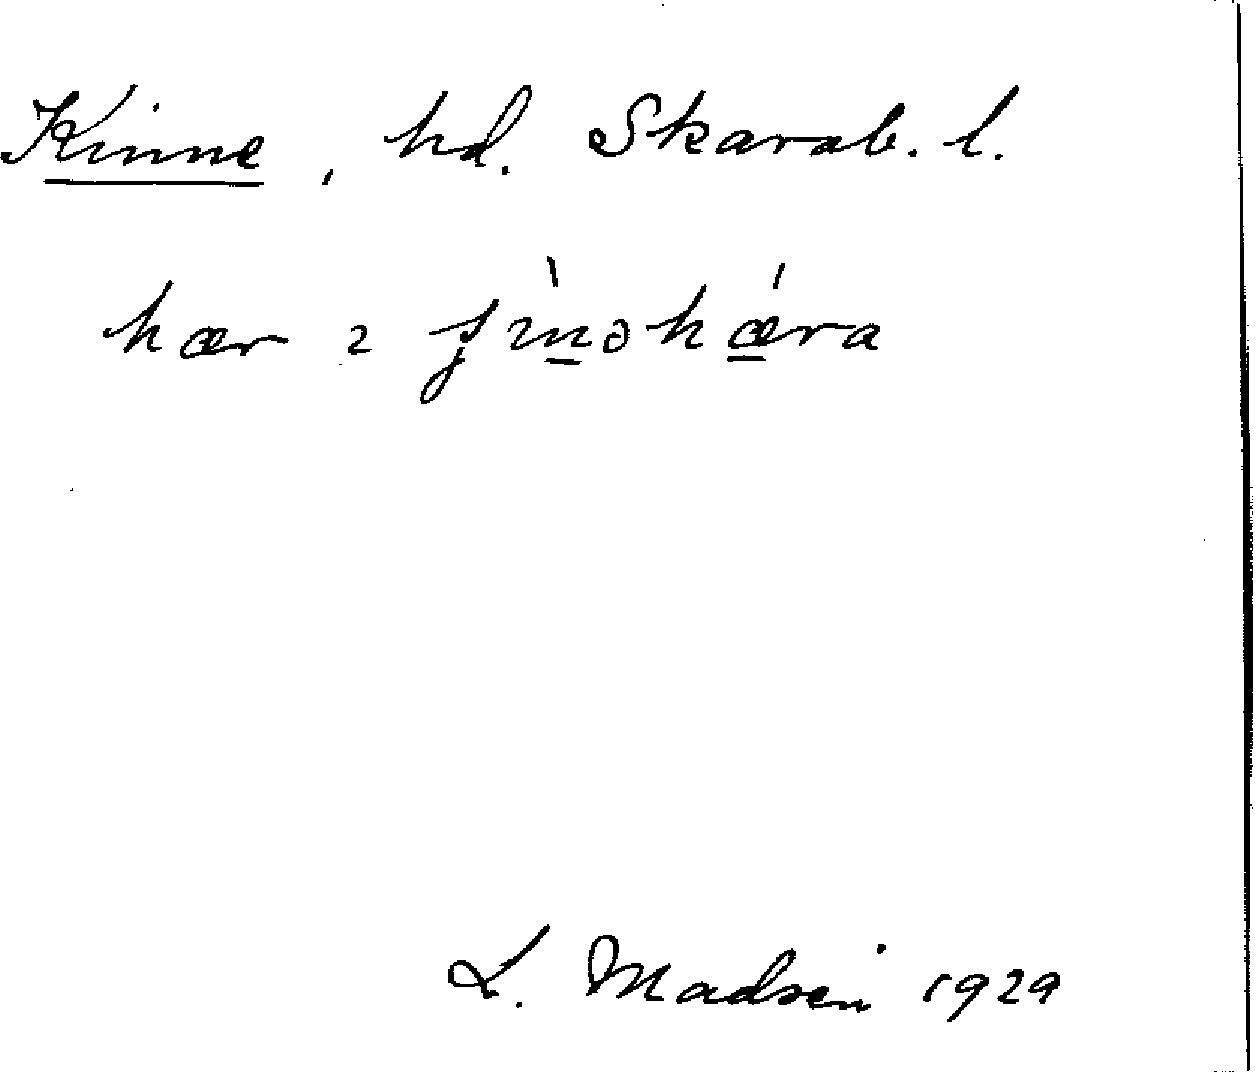 Kinne, hd. Skarab. l.
hær ɿ ʃìnəhǽra
L. Madsen 1929